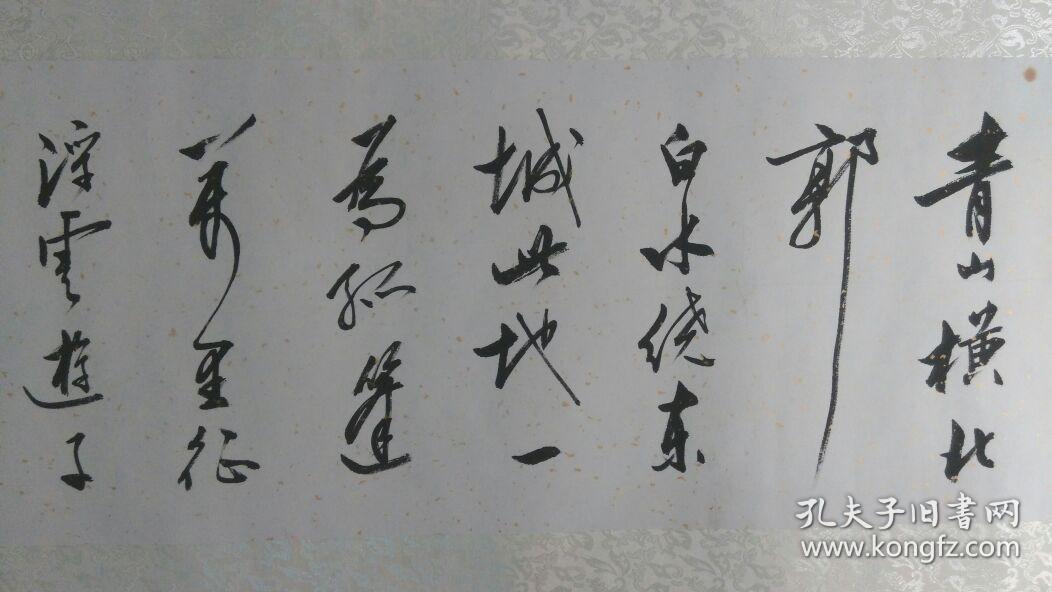 青山横北
郭
白水绕東
城此地一
為孤篷
萬里征
浮雲遊子
孔夫子旧書网
www.kongfz.com